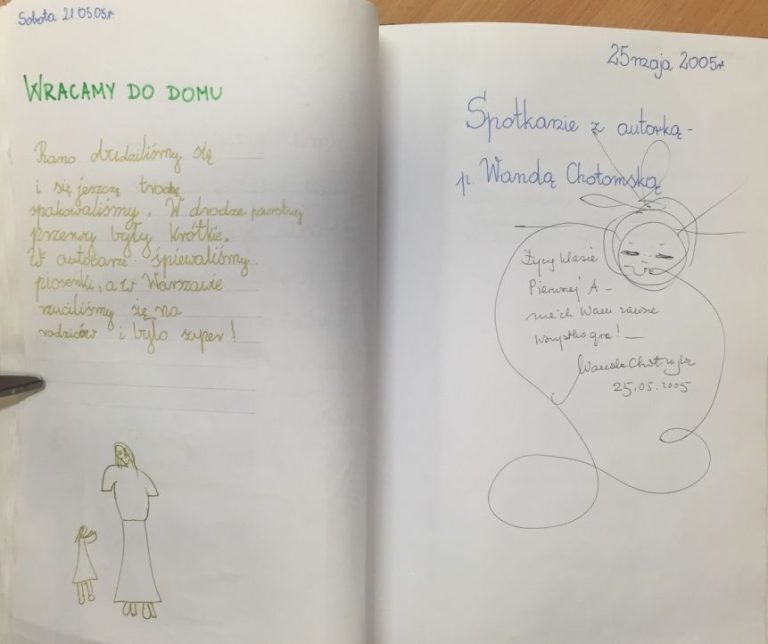 Sobota 21.05.05r.
WRACAMY DO DOMU
Rano obudziliśmy się
i się jeszcze trochę
spakowaliśmy. W drodze powrotnej
przerwy były krótkie.
W autokarze śpiewaliśmy
piosenki, a w Warszawie
rzuciliśmy się na
rodziców i było super!
25 maja 2005r.
Spotkanie z autorką -
p. Wandą Chotomską
Życzę klasie
Pierwszej A -
niech Wam zawsze
wszystko gra! —
Wanda Chotomska
25.05.2005